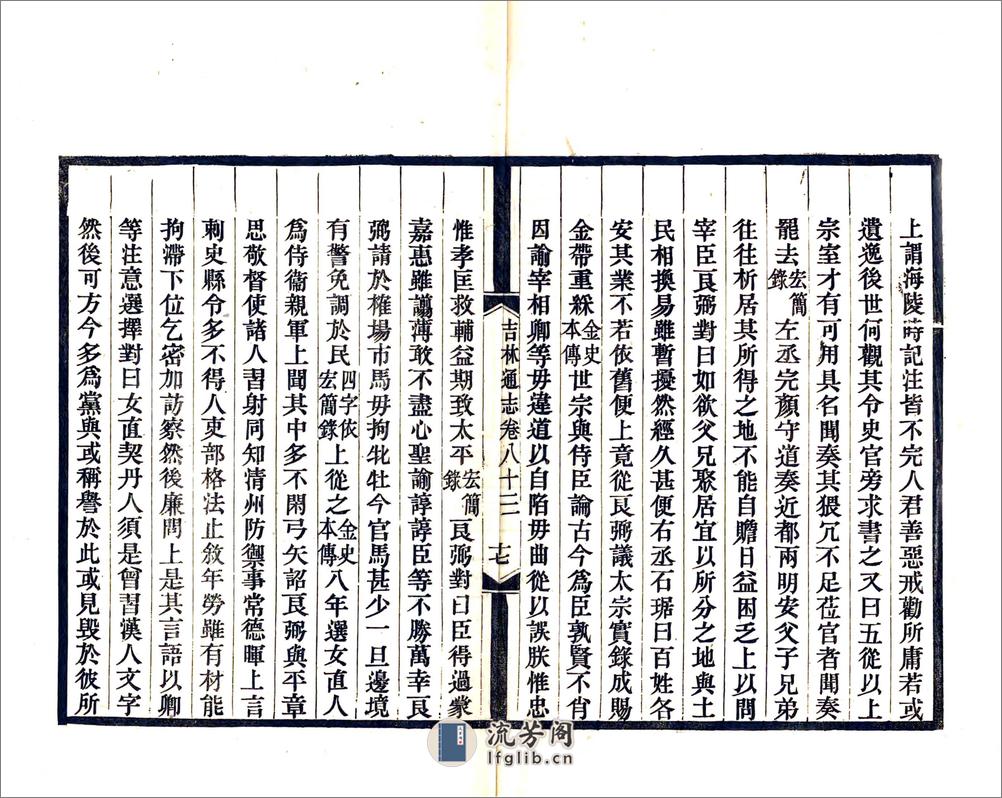 上謂海陵時記注皆不完人君善惡戒勸所庸若或
遺逸後世何觀其令史官旁求書之又曰五從以上
宗室才有可用具名聞奏其猥冗不足莅官者聞奏
罷去宏簡錄左丞完顏守道奏近都兩明安父子兄弟
往往析居其所得之地不能自贍日益困乏上以問
宰臣良弼對曰如欲父兄聚居宜以所分之地與土
民相換易雖暫擾然經久甚便右丞石琚曰百姓各
安其業不若依舊便上竟從良弼議太宗實錄成賜
金帶重綵金史本傳世宗與侍臣論古今爲臣孰賢不肖
因諭宰相卿等毋違道以自陷毋曲從以誤朕惟忠
吉林通志卷八十三 十七
惟孝匡救輔益期致太平宏簡錄良弼對曰臣得過蒙
嘉惠雖譾薄敢不盡心聖諭諄諄臣等不勝萬幸良
弼請於榷場市馬毋拘牝牡今官馬甚少一旦邊境
有警免調於民四字依宏簡錄上從之金史本傳八年選女直人
爲侍衞親軍上聞其中多不閑弓矢詔良弼與平章
思敬督使諸人習射同知清州防禦事常德暉上言
刺史縣令多不得人吏部格法止敘年勞雖有材能
拘滯下位乞密加訪察然後廉問上是其言語以卿
等注意選擇對曰女直契丹人須是曾習漢人文字
然後可方今多爲黨與或稱譽於此或見毀於彼所
流芳阁
lfglib.cn